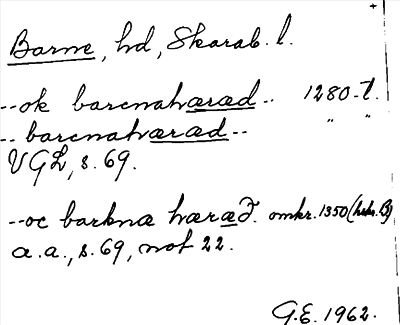 Barne, hd, Skarab. l.
--ok barcnahæræd-- 1280-t.
-- barcnahværæd-- " "
VGL, s. 69.
--oc barkna hæræð. omkr. 1350 (hskr. B)
a.a., s. 69, not 22.
G.E. 1962.